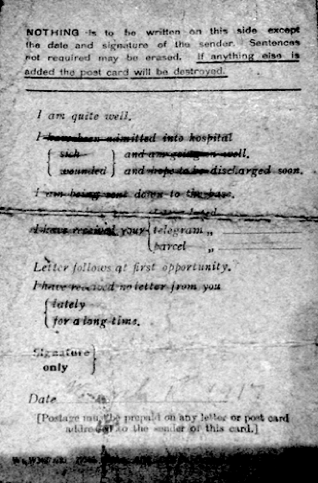 NOTHING is to be written on this side except
the date and signature of the sender. Sentences
not required may be erased. If anything else is
added the post card will be destroyed.
I am quite well.
I have been admitted into hospital
sick and am going on well.
wounded and hope to be discharged soon.
I am being sent down to the base.
I have received your
telegram „
parcel „
Letter follows at first opportunity.
I have received no letter from you
lately
for a long time.
Signature
only
Date
[Postage must be prepaid on any letter or post card
addressed to the sender of this card.]